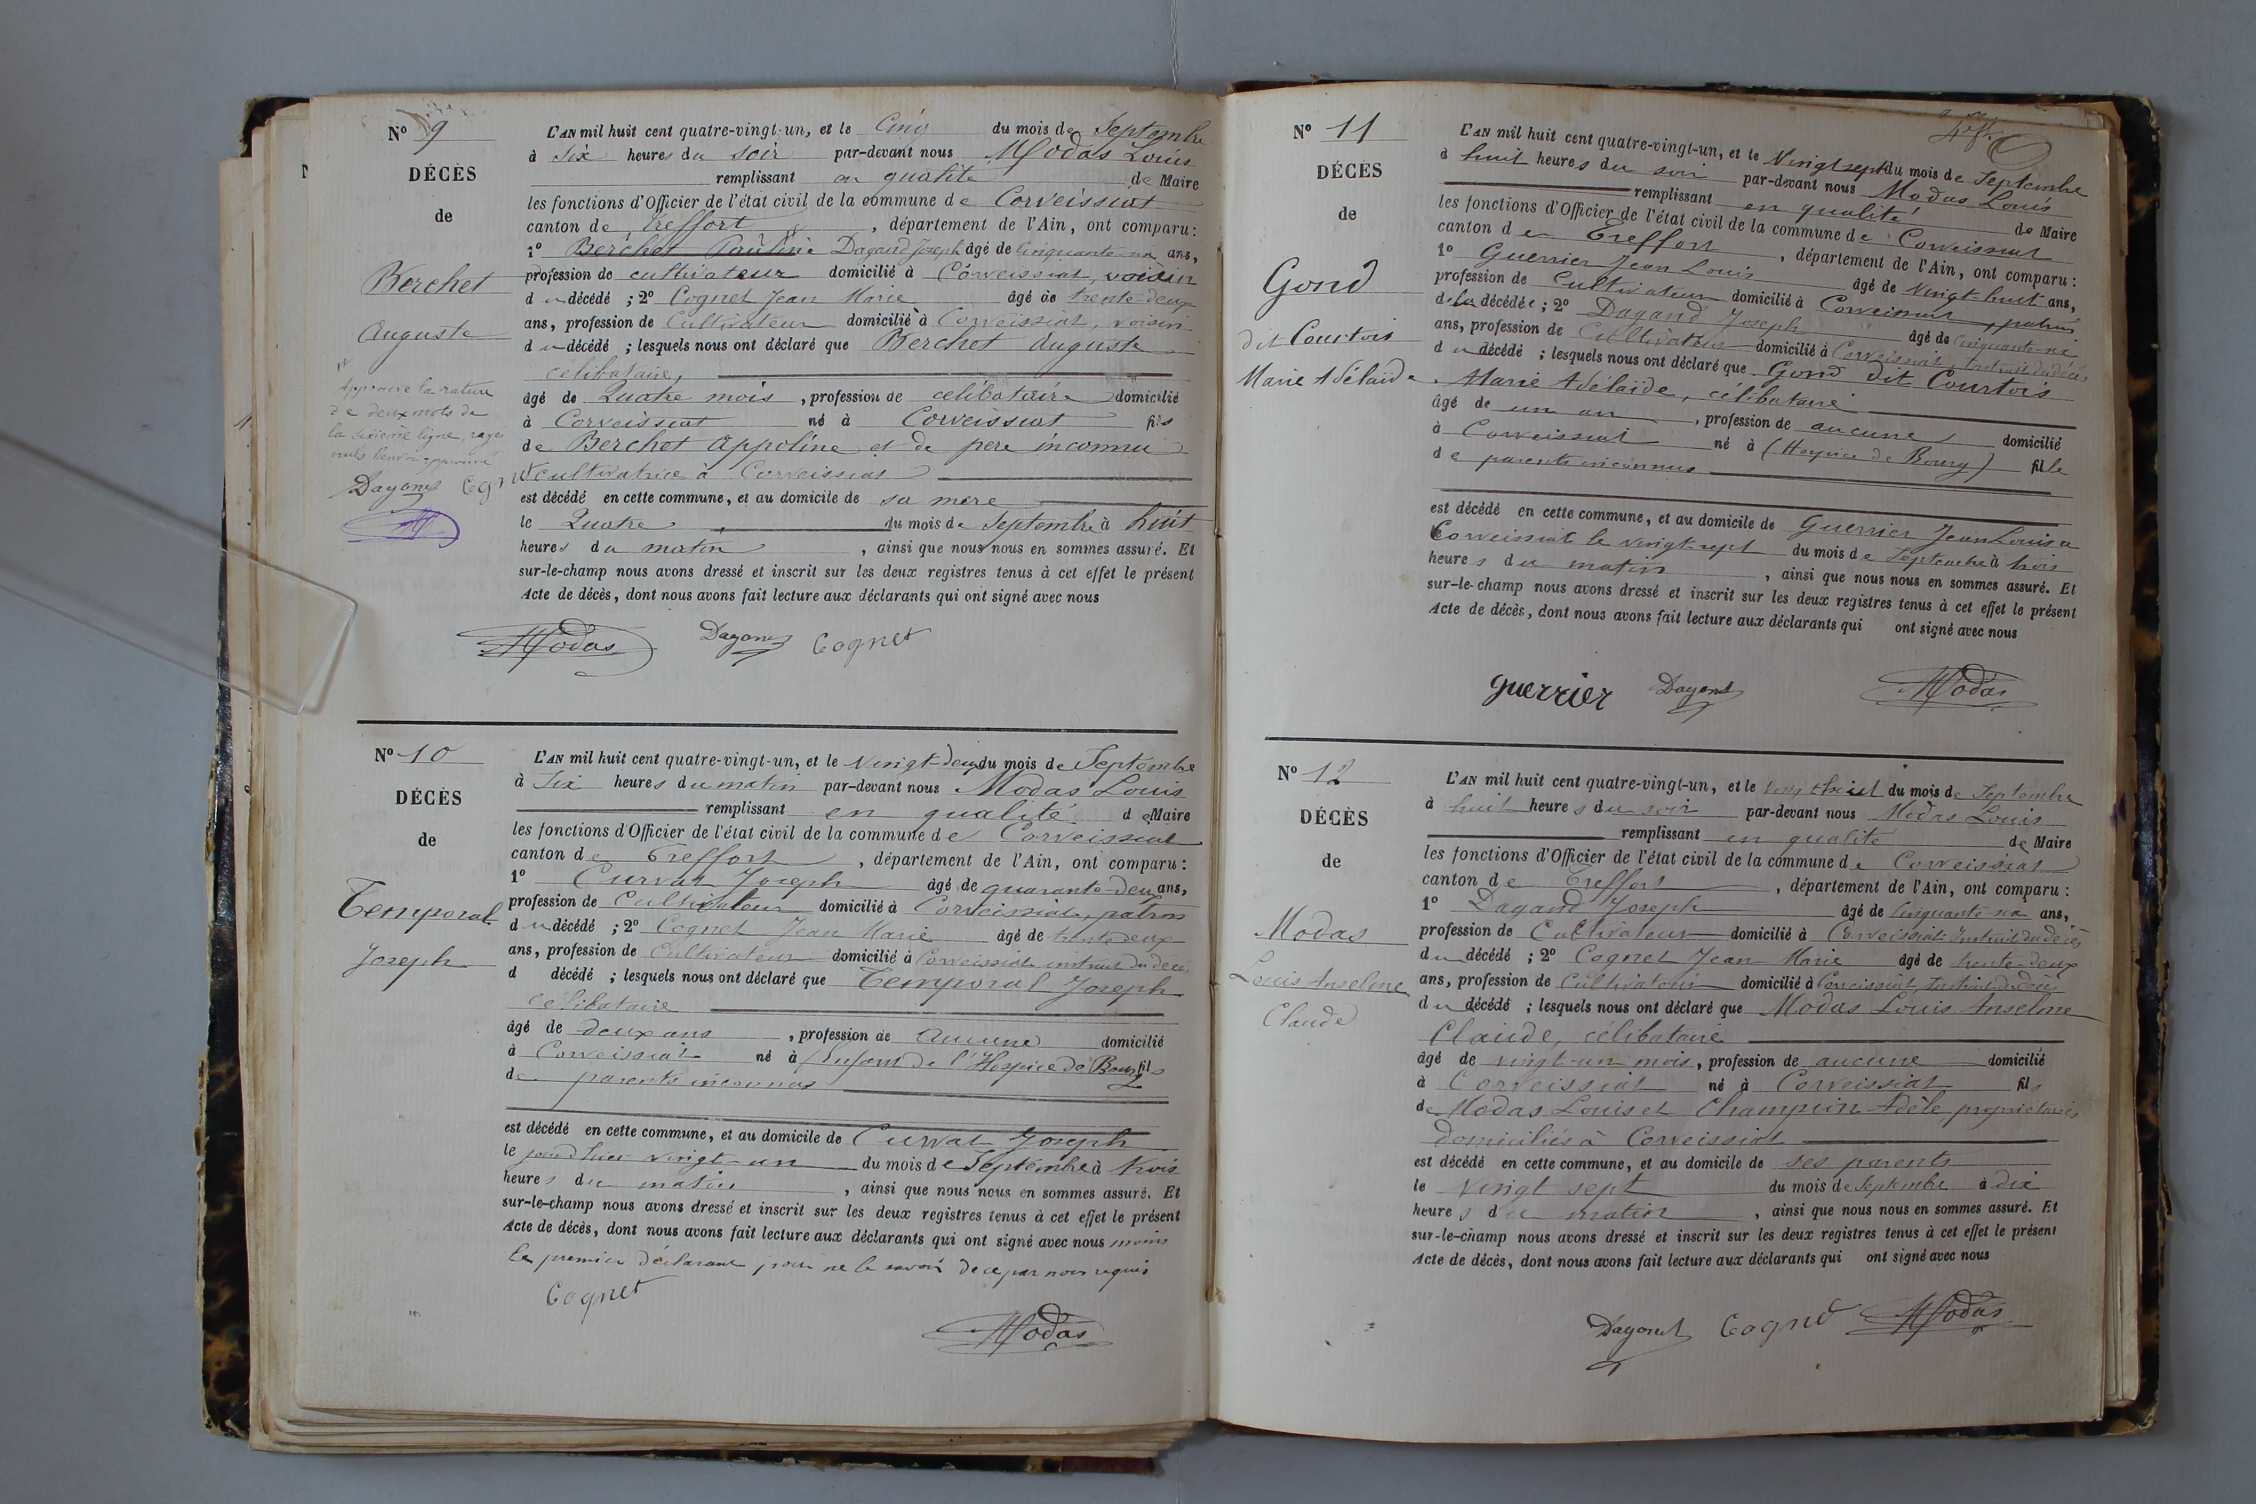 N° 9
DÉCÈS
de
Berchet
Auguste
Approuvé la rature
de deux mots de
la sixième ligne, rayés
nuls
Dagand Cogn
L'AN mil huit cent quatre-vingt-un, et le Cinq du mois de Septembre
à Six heures du soir par-devant nous Modas Louis
remplissant en qualité de Maire
les fonctions d'Officier de l'état civil de la commune de Corveissiat
canton de Treffort, département de l'Ain, ont comparu :
1° Berchet Pauline Dagand Joseph âgé de Cinquante-un ans,
profession de cultivateur domicilié à Corveissiat, voisin
du décédé ; 2° Cognet Jean Marie âgé de trente-deux
ans, profession de Cultivateur domicilié à Corveissiat, voisin
du décédé ; lesquels nous ont déclaré que Berchet Auguste
célibataire,
âgé de Quatre mois, profession de célibataire domicilié
à Corveissiat né à Corveissiat fils
de Berchet Appoline et de pere inconnu
cultivatrice à Corveissiat
est décédé en cette commune, et au domicile de sa mere
le Quatre du mois de Septembre à huit
heures du matin, ainsi que nous nous en sommes assuré. Et
sur-le-champ nous avons dressé et inscrit sur les deux registres tenus à cet effet le présent
Acte de décès, dont nous avons fait lecture aux déclarants qui ont signé avec nous
Modas Dagand Cognet
N° 10
DÉCÈS
de
Temporal
Joseph
L'AN mil huit cent quatre-vingt-un, et le Vingt-deux du mois de Septembre
à Six heures du matin par-devant nous Modas Louis
remplissant en qualité de Maire
les fonctions d'Officier de l'état civil de la commune de Corveissiat
canton de Treffort, département de l'Ain, ont comparu :
1° Curvat Joseph âgé de quarante-deux ans,
profession de Cultivateur domicilié à Corveissiat, patron
du décédé ; 2° Cognet Jean Marie âgé de trente deux
ans, profession de Cultivateur domicilié à Corveissiat instruit du décès
d décédé ; lesquels nous ont déclaré que Temporal Joseph
célibataire
âgé de deux ans, profession de Aucune domicilié
à Corveissiat né à (Enfant de l'Hospice de Bourg) fils
de parents inconnus
est décédé en cette commune, et au domicile de Curvat Joseph
le jour d'hier vingt-un du mois de Septembre à trois
heures du matin, ainsi que nous nous en sommes assuré. Et
sur-le-champ nous avons dressé et inscrit sur les deux registres tenus à cet effet le présent
Acte de décès, dont nous avons fait lecture aux déclarants qui ont signé avec nous moins
le premier déclarant pour ne le savoir de ce par nous requis
Cognet
Modas
N° 11
DÉCÈS
de
Gond
dit Courtois
Marie Adélaïde
L'AN mil huit cent quatre-vingt-un, et le Vingt sept du mois de Septembre
à huit heures du soir par-devant nous Modas Louis
remplissant en qualité de Maire
les fonctions d'Officier de l'état civil de la commune de Corveissiat
canton de Treffort, département de l'Ain, ont comparu :
1° Guerrier Jean Louis âgé de Vingt-huit ans,
profession de Cultivateur domicilié à Corveissiat, patron
de la décédée ; 2° Dagand Joseph âgé de Cinquante-un
ans, profession de Cultivateur domicilié à Corveissiat, instruit du décès
du décédé ; lesquels nous ont déclaré que Gond dit Courtois
Marie Adélaïde, célibataire
âgé de un an, profession de aucune domicilié
à Corveissiat né à (Hospice de Bourg) fille
de parents inconnus
est décédé en cette commune, et au domicile de Guerrier Jean Louis a
Corveissiat le vingt-sept du mois de Septembre à trois
heures du matin, ainsi que nous nous en sommes assuré. Et
sur-le-champ nous avons dressé et inscrit sur les deux registres tenus à cet effet le présent
Acte de décès, dont nous avons fait lecture aux déclarants qui ont signé avec nous
guerrier Dagand Modas
N° 12
DÉCÈS
de
Modas
Louis Anselme
Claude
L'AN mil huit cent quatre-vingt-un, et le vingt huit du mois de Septembre
à huit heures du soir par-devant nous Modas Louis
remplissant en qualité de Maire
les fonctions d'Officier de l'état civil de la commune de Corveissiat
canton de Treffort, département de l'Ain, ont comparu :
1° Dagand Joseph âgé de Cinquante-un ans,
profession de Cultivateur domicilié à Corveissiat Instruit du décès
du décédé ; 2° Cognet Jean Marie âgé de trente-deux
ans, profession de Cultivateur domicilié à Corveissiat, Instruit du décès
du décédé ; lesquels nous ont déclaré que Modas Louis Anselme
Claude, célibataire
âgé de vingt-un mois, profession de aucune domicilié
à Corveissiat né à Corveissiat fils
de Modas Louis et Champion Adèle propriétaires
domiciliés à Corveissiat
est décédé en cette commune, et au domicile de ses parents
le Vingt sept du mois de Septembre à dix
heures du matin, ainsi que nous nous en sommes assuré. Et
sur-le-champ nous avons dressé et inscrit sur les deux registres tenus à cet effet le présent
Acte de décès, dont nous avons fait lecture aux déclarants qui ont signé avec nous
Dagand Cognet Modas